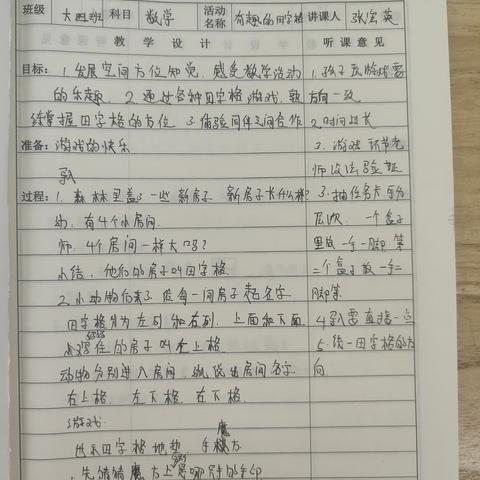 班级 大四班 科目 数学 活动名称 有趣的田字格 讲课人 张宏英
教 学 设 计 听 课 意 见
目标： 1. 发展空间方位知觉，感受数学活动 1. 孩子玩游戏要
的乐趣. 2. 通过各种田字格游戏，能 方向一致
续掌握田字格的方位 3. 体验同伴之间合作 2. 时间过长
准备： 游戏的快乐 3. 游戏环节老
师设法验证
过程： 1. 森林里盖了一些新房子. 新房子长什么样? 3. 抽任务卡可分
幼：有4个小房间. 层次. 一个盒子
师. 4个房间一样大吗? 里放一手一脚 第
小结：他们的房子叫田字格. 二个盒子放一手二
2. 小动物们来了. 给每一间房子起名字. 脚等
田字格分为左列和右列. 上面和下面 4. 导入要直接一点
住的房子叫左上格 5. 统一田字格的方
动物分别进入房间 说出房间名字. 向
右上格. 左下格. 右下格.
游戏.
出示田字格地垫. 手 魔方
1. 先猜猜魔方上是哪只的手印